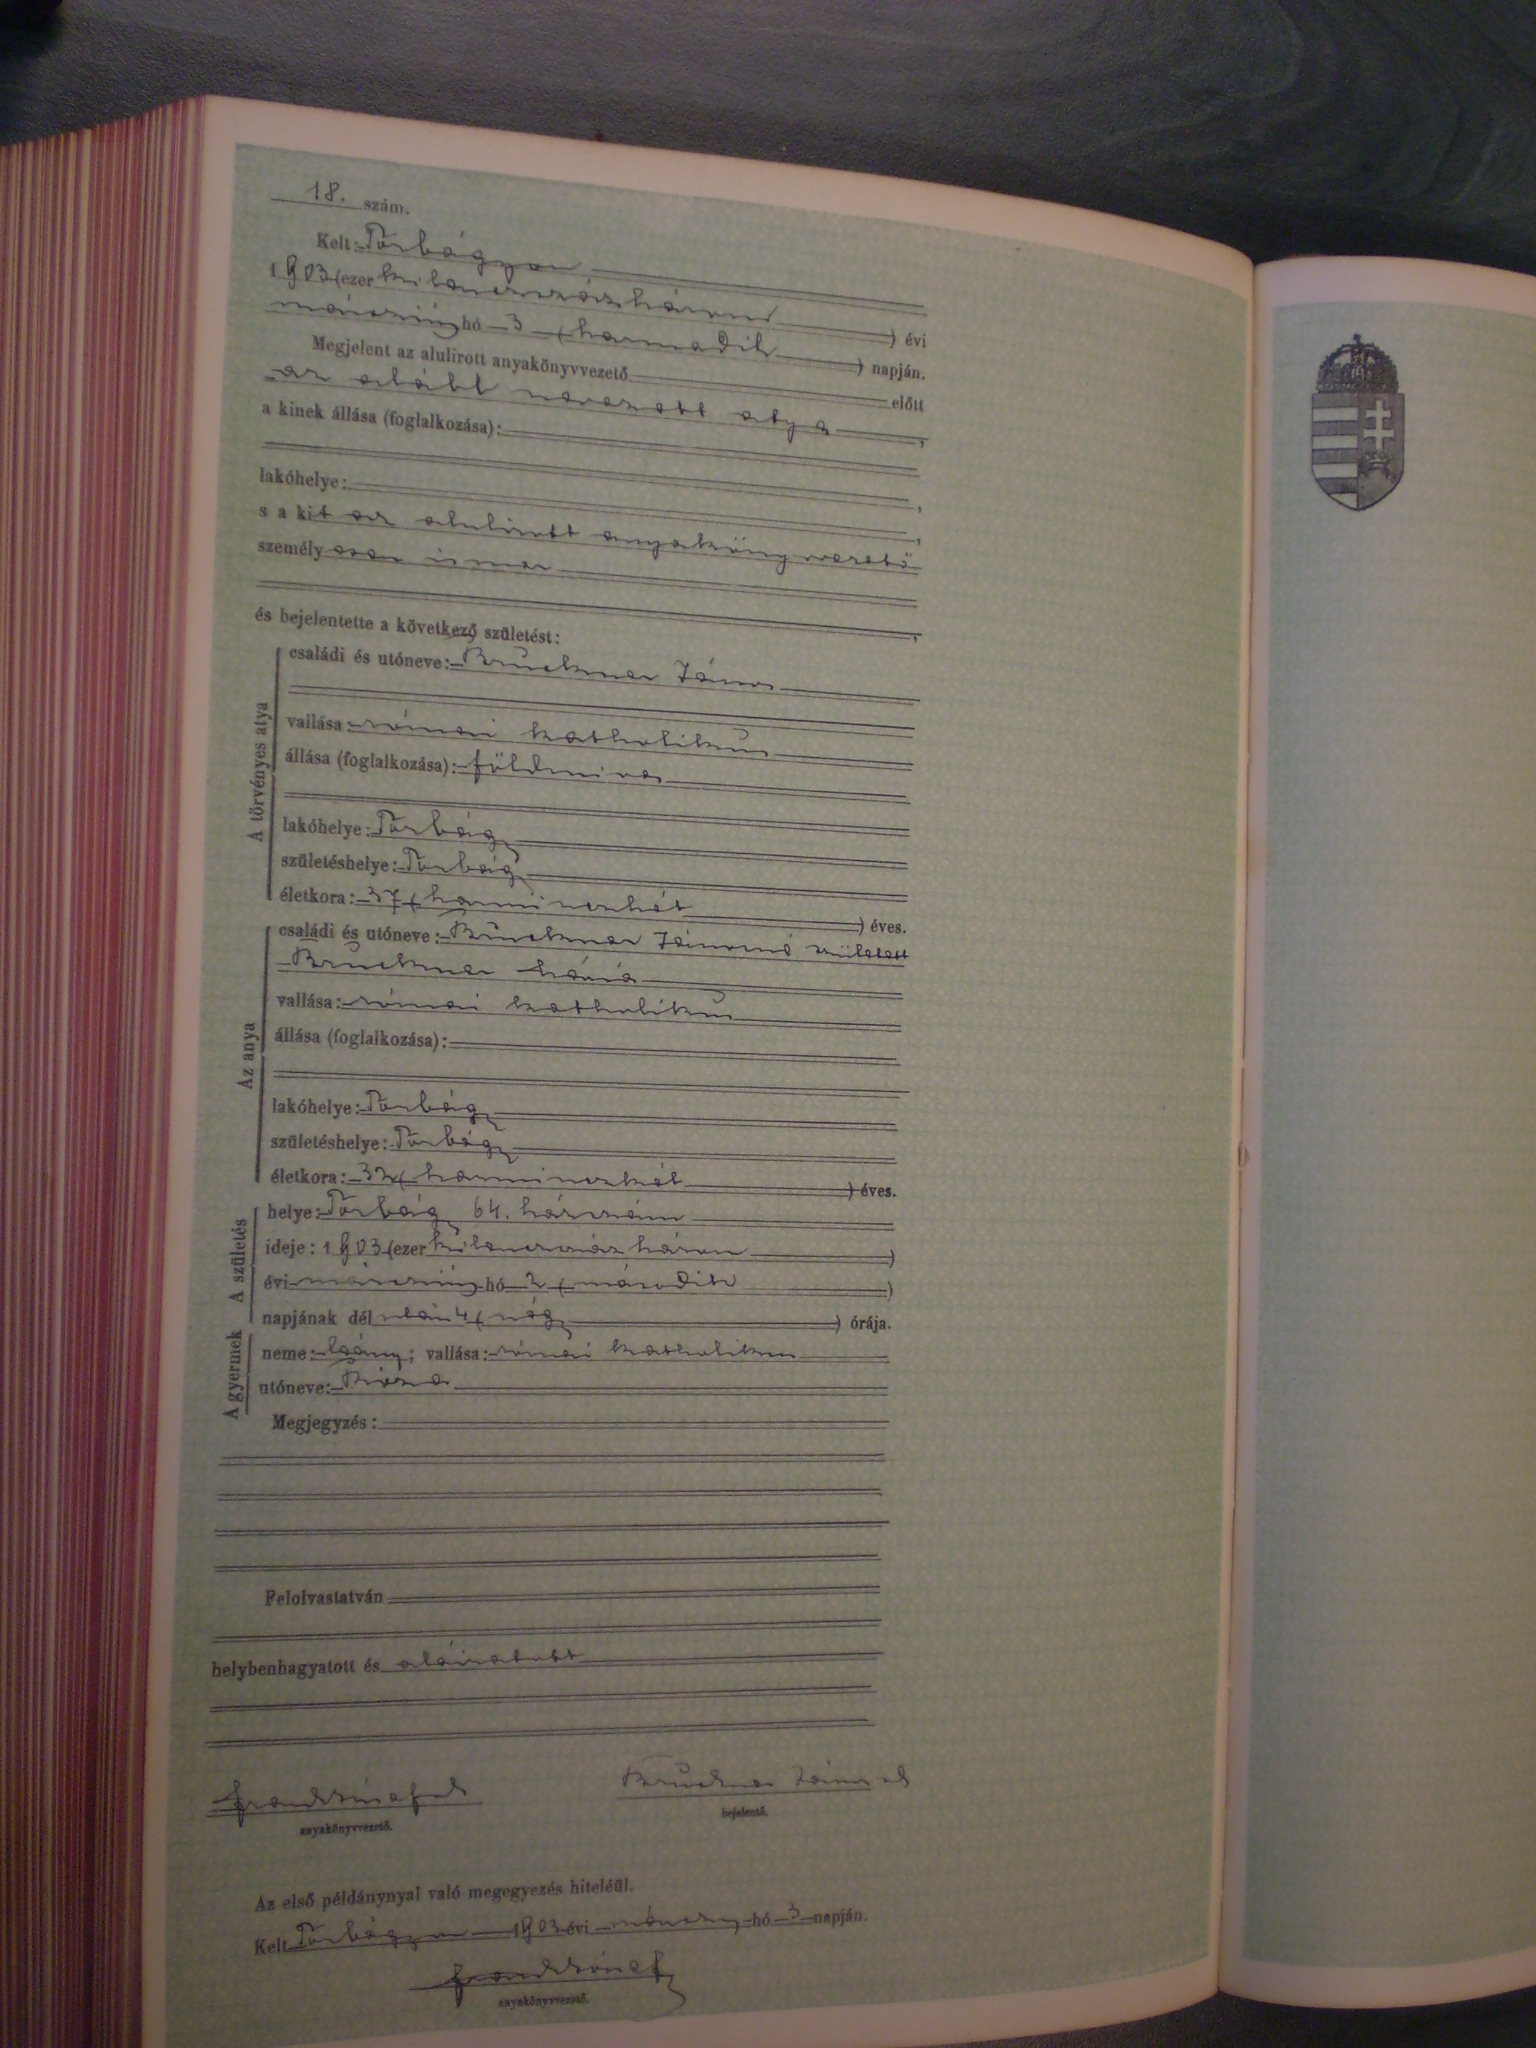 18. szám.
Kelt: Törbágyon
1903 (ezer kilenczszázhárom) évi
márczius hó 3 (harmadik) napján.
Megjelent az alulirott anyakönyvvezető előtt
az alább nevezett atya,
a kinek állása (foglalkozása):
lakóhelye:,
s a kit az alulirott anyakönyvvezető
személyesen ismer
és bejelentette a következő születést:
A törvényes atya
családi és utóneve: Bruckner János
vallása: római katholikus
állása (foglalkozása): földmives
lakóhelye: Törbágy
születéshelye: Törbágy
életkora: 37 (harminczhét) éves.
Az anya
családi és utóneve: Bruckner Jánosné született
Bruckner Mária
vallása: római katholikus
állása (foglalkozása):
lakóhelye: Törbágy
születéshelye: Törbágy
életkora: 32 (harminczkét) éves.
A születés
helye: Törbágy 64. házszám
ideje: 1903 (ezer kilenczszázhárom)
évi márczius hó 2 (második)
napjának dél után 4 (négy) órája.
A gyermek
neme: leány; vallása: római katholikus
utóneve: Róza
Megjegyzés:
Felolvastatván
helybenhagyatott és aláiratott
anyakönyvvezető.
Bruckner János
bejelentő.
Az első példánynyal való megegyezés hiteléül.
Kelt Törbágyon 1903 évi márczius hó 3 napján.
anyakönyvvezető.